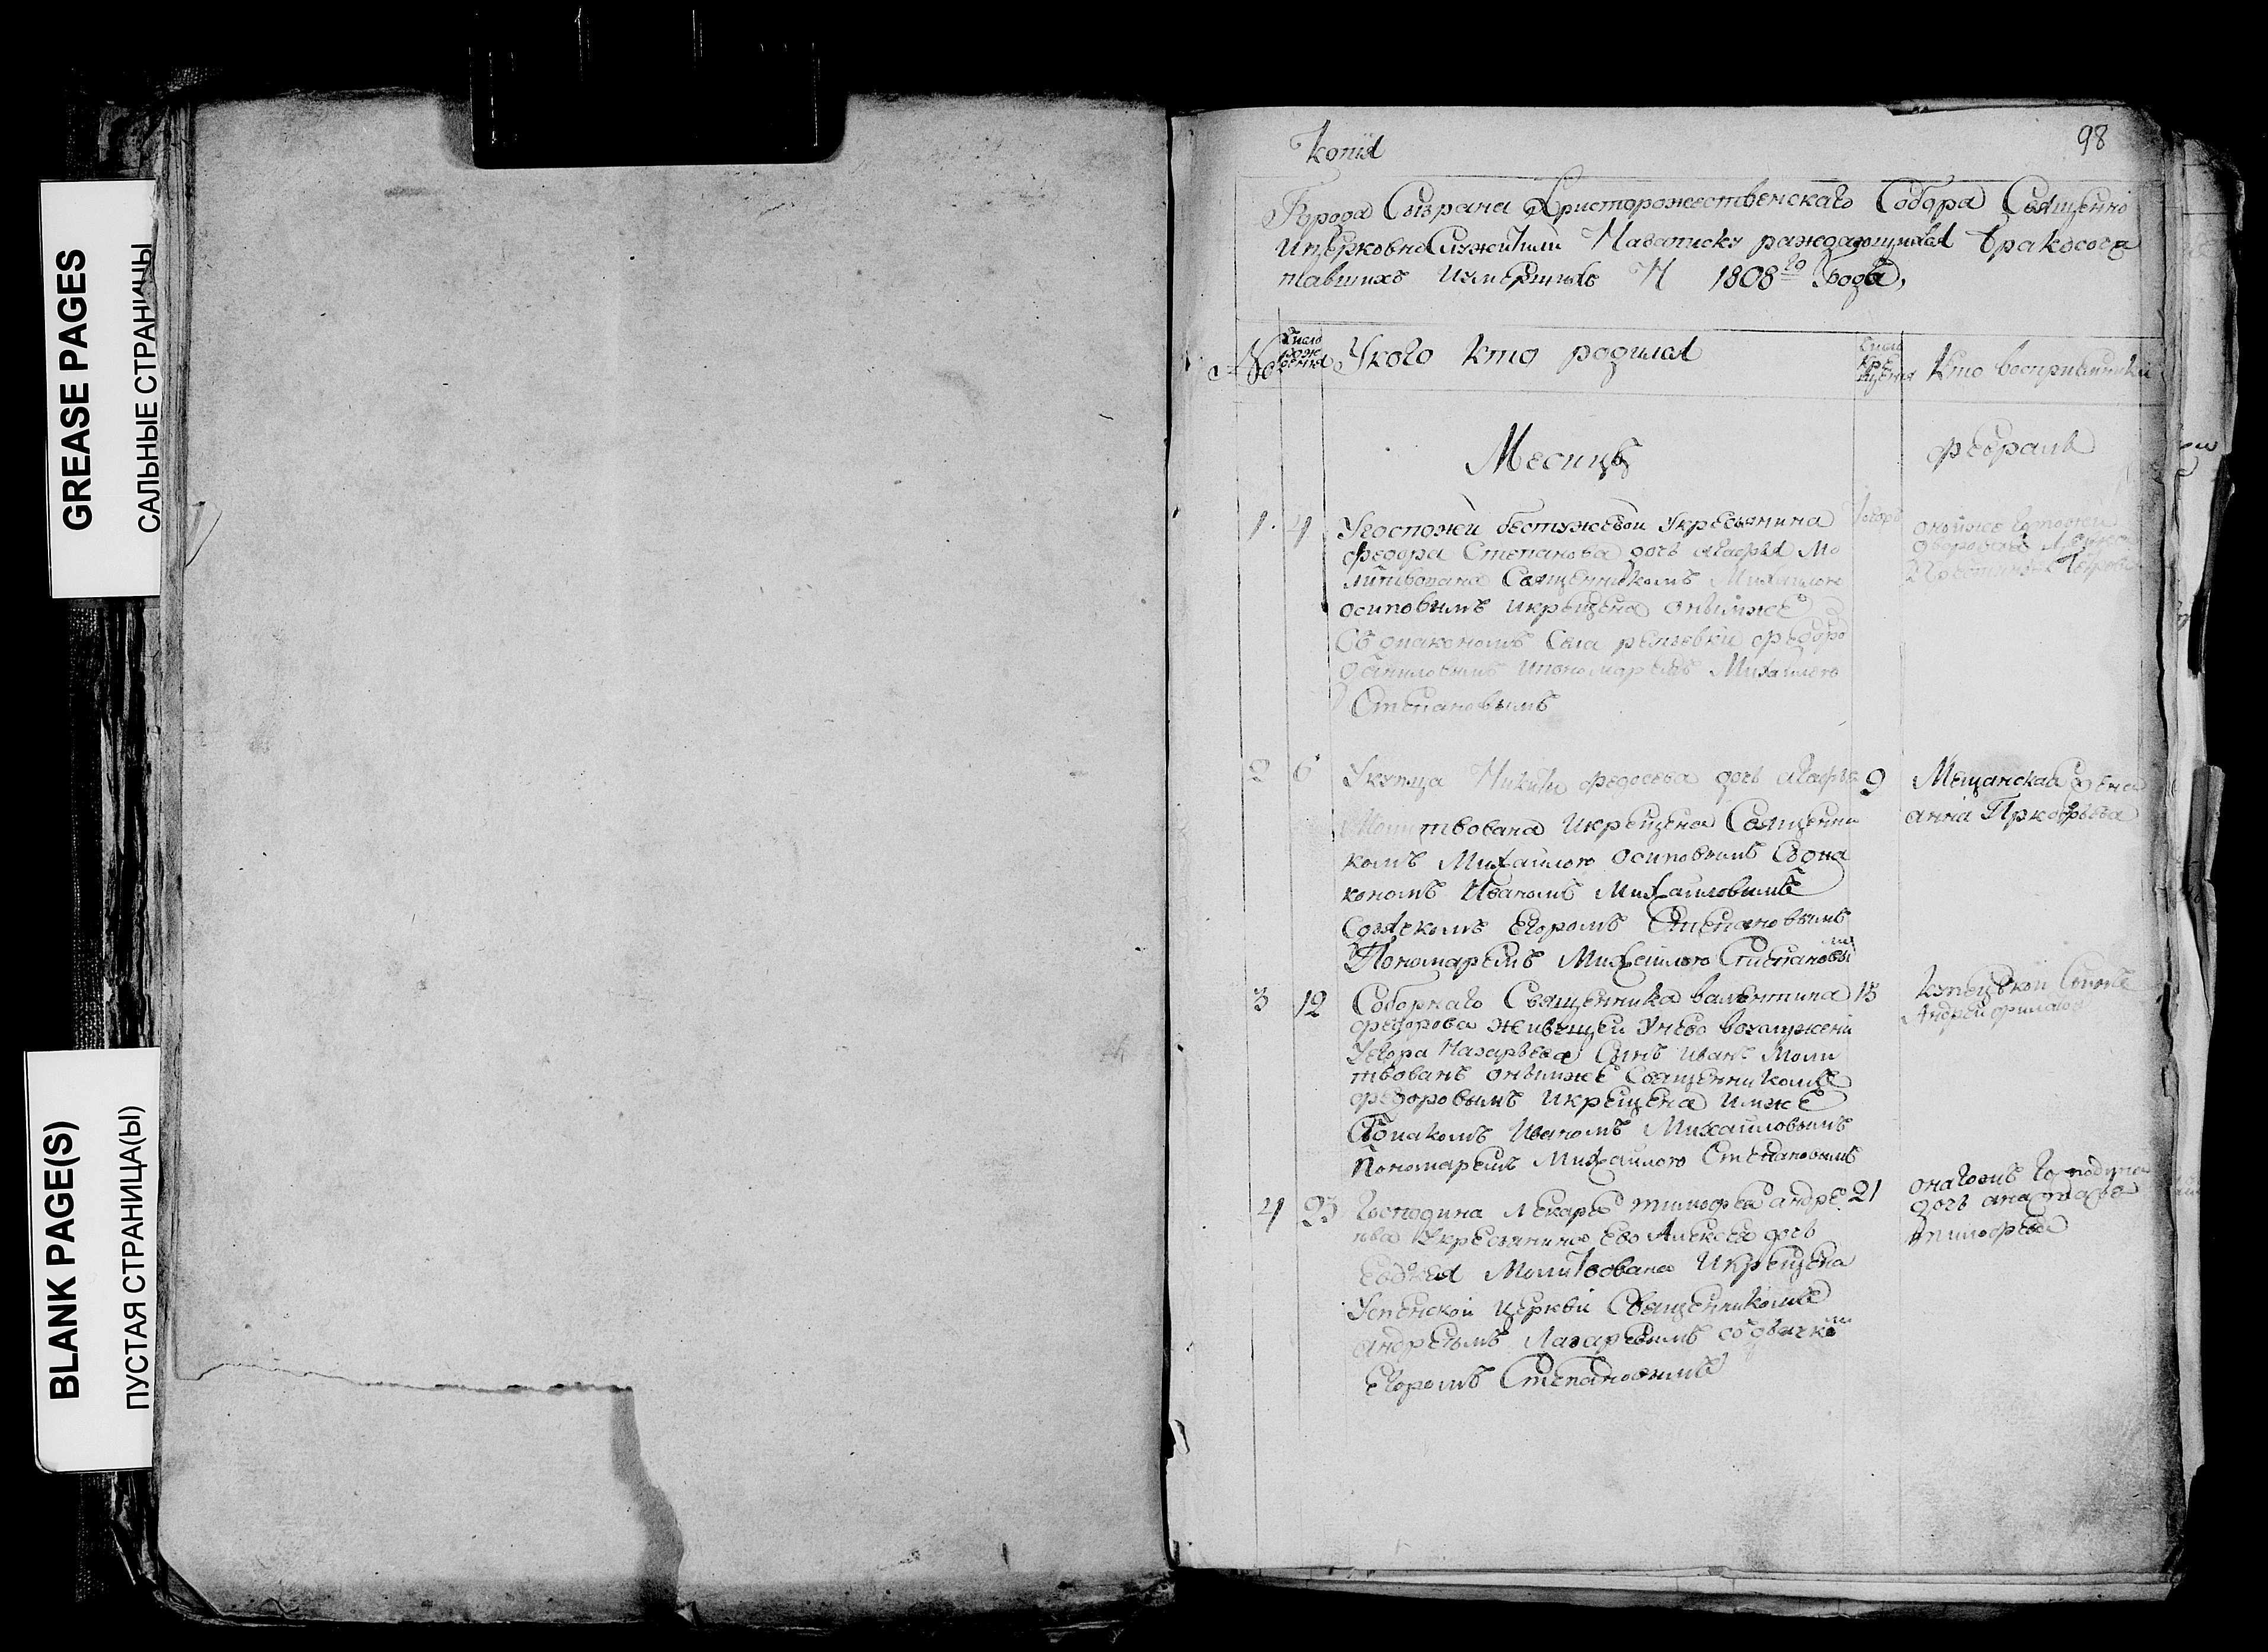 GREASE PAGES
САЛЬНЫЕ СТРАНИЦЫ
BLANK PAGE(S)
ПУСТАЯ СТРАНИЦА(Ы)
98
Копія
Города Сызрана Христорожественскаго Собора Священно
ицерковно Служители Назаписку раждающихся бракосоче
тавшихъ иумершихъ 1808го Года,
№
Число рож дения
Укого кто родился
Число кре щения
Кто восприемники
Месицъ
февраль
1. 4
Угоспожи бестужевои Укресьянина
федора Степанова дочь агафья Мо
литвована Священникомъ Михаилою
осиповымъ икрещена онымже
Съ диакономъ Села репьевки федоро
Даниловымъ ипономаремъ Михаилою
Степановымъ
онойже госпожи
2 6
Укупца Никиты федосеева дочь агафья
Молитвована Икрещена Священни
комъ Михаилою осиповымъ Сдиа
кономъ Иваномъ Михаиловымъ
Сдячкомъ Егоромъ Степановымъ
Пономаремъ Михаилою Степановы
9
Мещанская жена
анна Пркофьева
3 12
Соборнаго Священника валентина
федорова живущеи Унево вохлужени
Уегора Назарьева Сынъ иванъ Моли
твованъ онымже Священникомъ
федоровымъ икрещена имже
Сдиакомъ Иваномъ Михаиловымъ
Пономаремъ Михаилою Степановымъ
15
Купецькой Сынъ
Андрей филатов
4 23
Господина лекаря тимофея андре
ива Укресьянина ево Алексея дочь
Евдокея Молитвована Икрещена
Успенской церкви Священникомъ
андреемъ Лазаревымъ съдьячко
Егоромъ Степановымъ
21
онагожъ господина
дочь анастасья
тимофева